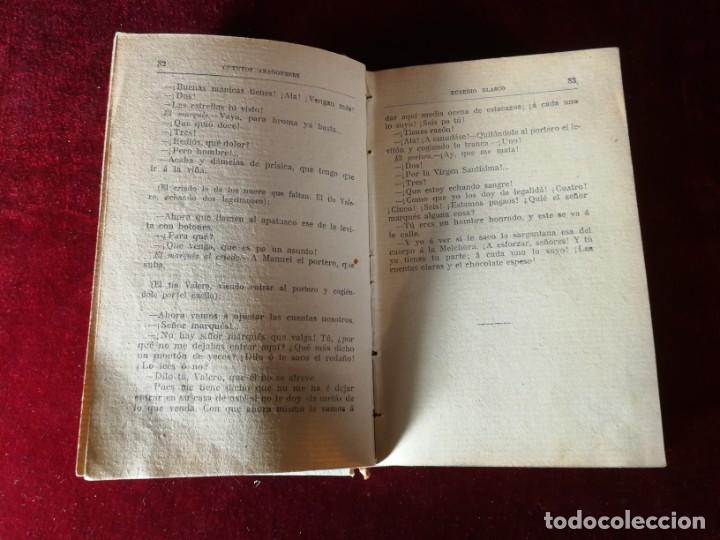 82 CUENTOS ARAGONESES
—¡Buenas manicas tienes! ¡Ala! ¡Vengan más!
—¡Dos!
—Las estrellas hi visto!
El marqués.—Vaya, para broma ya basta..
—¡Que quió doce!
—¡Tres!
—¡Rediós, qué dolor!
—¡Pero hombre!..
—Acaba y dámelas de prisica, que tengo que
ir á la viña.
(El criado le da los nueve que faltan. El tío Vale-
ro, echando dos lagrimones):
—Ahora que llamen al apatusco ese de la levi-
ta con botones.
—¿Para qué?
—¡Que venga, que es po un asunto!
El marqués al criado.—A Manuel el portero, que
suba.
(El tío Valero, viendo entrar al portero y cogién-
dole por el cuello):
—Ahora vamos á ajustar las cuentas nosotros.
—¡Señor marqués!..
—¡No hay señor marqués que valga! Tú, ¿por
qué no me dejabas entrar aquí? ¿Qué más dicho
un montón de veces? ¡Dilo ó te saco el redaño!
¿Lo ices ó no?
—Dilo tú, Valero, que él no se atreve.
—Pues me tiene dicho que no me há é dejar
entrar en su casa de osté si no le doy la metá de
lo que venda. Con que ahora mismo le vamos á
EUSEBIO BLASCO 83
dar aquí media ocena de estacazos; á cada uno
lo suyo! ¡Seis po tú!
—¡Tienes razón!
—¡Ala! ¡A esnudase!—Quitándole al portero el le-
vitón y cogiendo la tranca—¡Uno!
El portero.—¡Ay, que me mata!
—¡Dos!
—¡Por la Virgen Santísima!..
—¡Tres!
—¡Que estoy echando sangre!
—¡Como que yo los doy de legalidá! ¡Cuatro!
¡Cinco! ¡Seis! ¡Estamos pagaos! ¿Quié el señor
marqués alguna cosa?
—Tú eres un hombre honrado, y este se va á
la calle.
—Y yo á ver si le saco la sargantana esa del
cuerpo á la Melchora. ¡A esforzar, señores! Y tú
ya tienes tu parte; á cada uno lo suyo! ¡Las
cuentas claras y el chocolate espeso!
todocoleccion.net